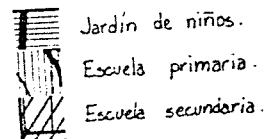 Jardín de niños.
Escuela primaria.
Escuela secundaria.